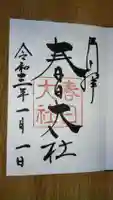 奉拝
春日大社
春日大社
令和三年一月一日